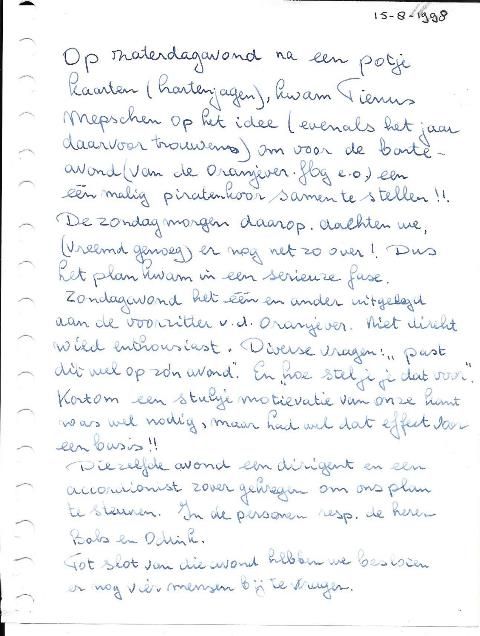 15-8-1998
Op zaterdagavond na een potje
kaarten (hartenjagen), kwam Tienus
Mepschen op het idee (evenals het jaar
daarvoor trouwens) om voor de bonte-
avond (van de Oranjever. Gbg e.o) een
één malig piratenkoor samen te stellen !!.
De zondagmorgen daarop dachten we,
(vreemd genoeg) er nog net zo over! Dus
het plan kwam in een serieuze fase.
Zondagavond het één en ander uitgelegd
aan de voorzitter v.d. Oranjever. Niet direkt
wild enthousiast. Diverse vragen: „past
dit wel op zo'n avond". En „hoe stel je je dat voor".
Kortom een stukje motievatie van onze kant
was wel nodig, maar had wel dat effect van
een basis !!
Diezelfde avond een dirigent en een
accordionist zover gekregen om ons plan
te steunen. In de personen resp. de heren
Bols en O.Mink.
Tot slot van die avond hebben we besloten
er nog vier mensen bij te vragen.